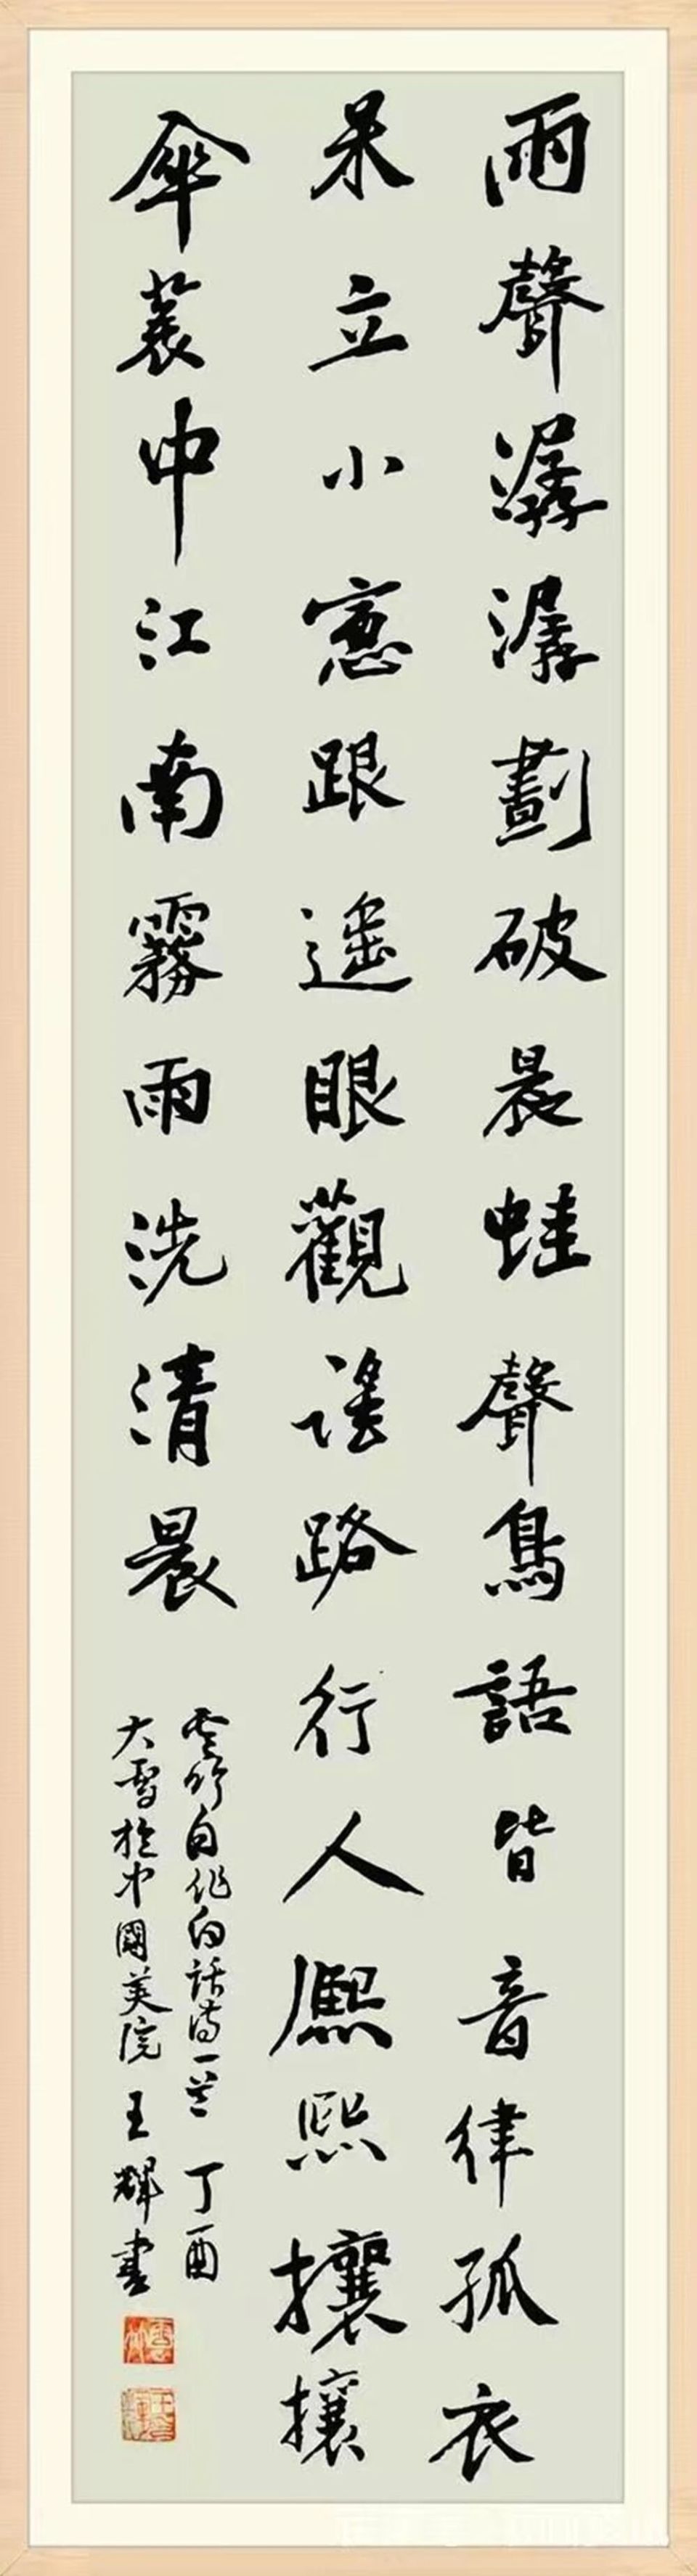 雨聲潺潺劃破晨蛙聲鳥語皆音律孤衣
呆立小窓跟遥眼觀谣路行人熈熙攘攘
傘蓑中江南霧雨洗清晨
雲竹自作白話詩一首 丁酉
大雪於中國美院 王輝書